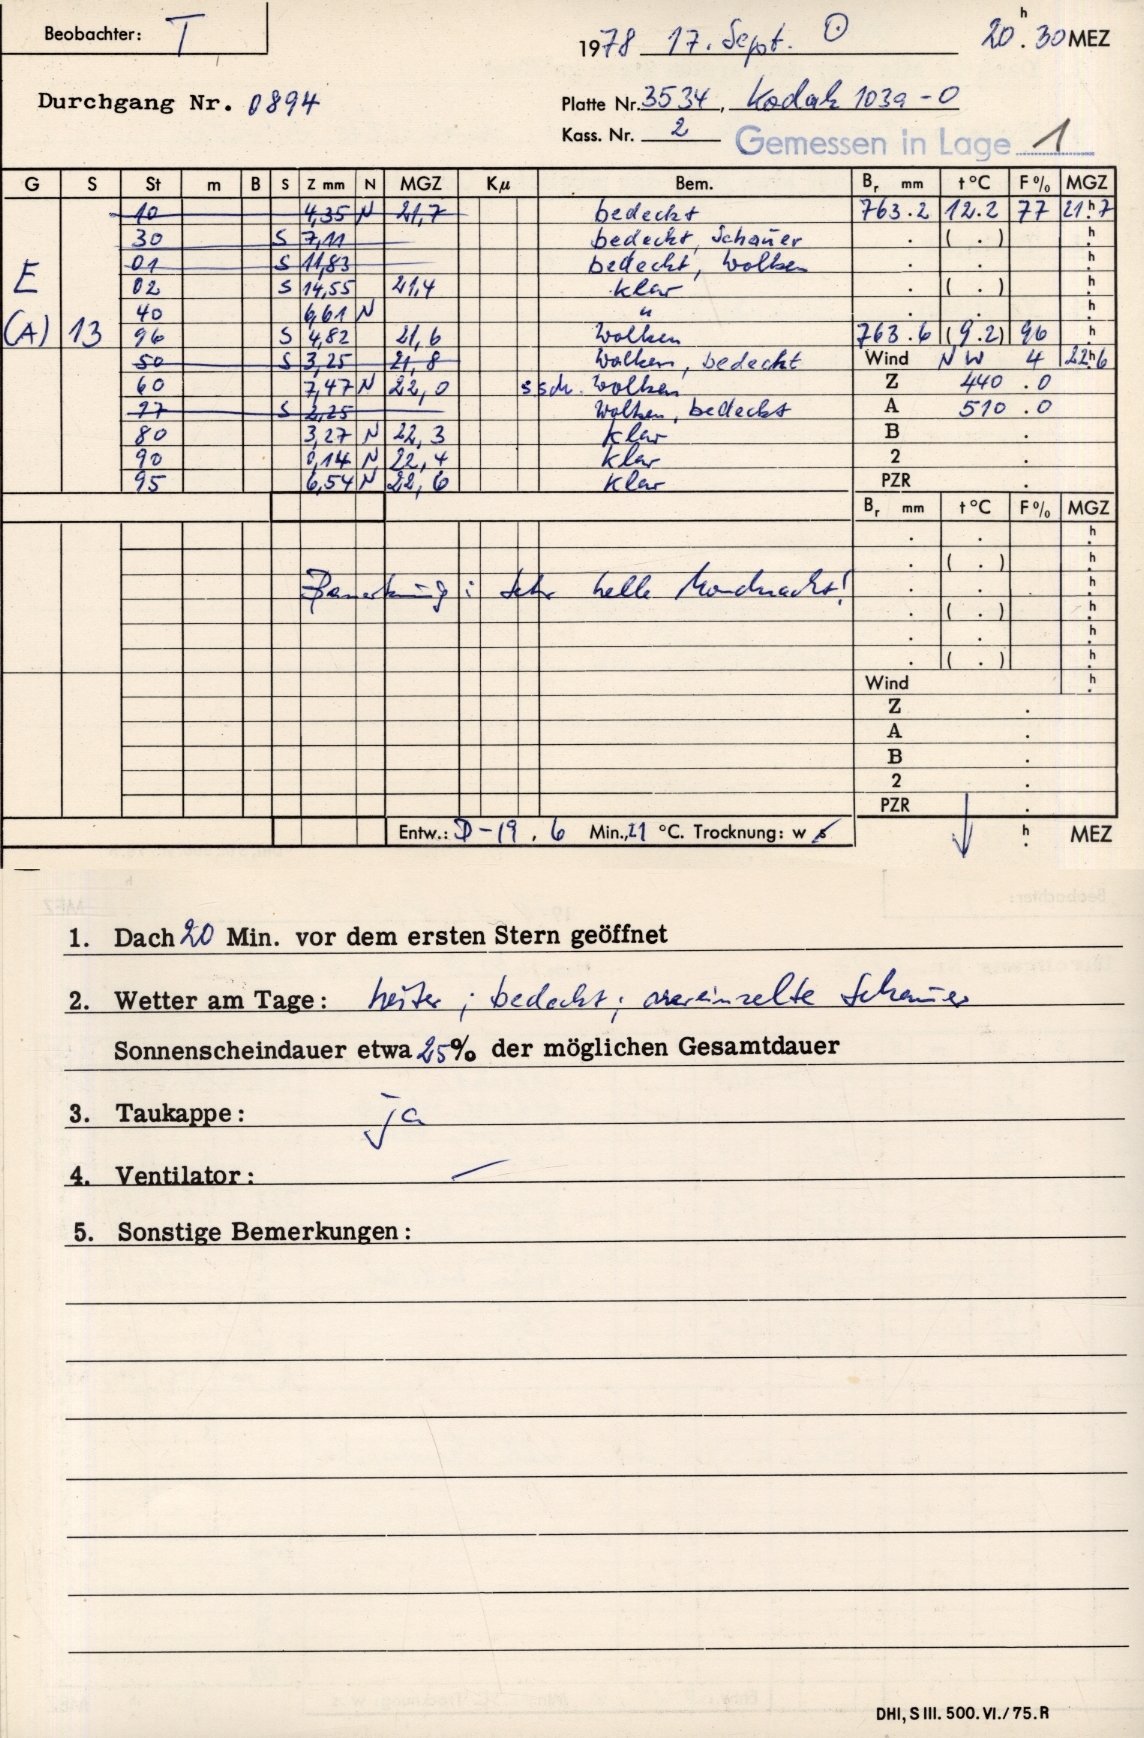 Beobachter: T
1978 17. Sept. ☉ 20h.30 MEZ
Durchgang Nr. 0894
Platte Nr. 3534, Kodak 103a-O
Kass. Nr. 2 Gemessen in Lage 1
G S St m B S Z mm N MGZ Kμ Bem. Br mm t °C F % MGZ
10 4,35 N 21,7 bedeckt 763.2 12.2 77 21h.7
30 S 7,11 bedeckt, Schauer . ( . ) h.
01 S 11,83 bedeckt, Wolken . . h.
E 02 S 14,55 21,4 klar . ( . ) h.
40 6,61 N " . . h.
(A) 13 96 S 4,82 21,6 Wolken 763.6 (9.2) 96 h.
50 S 3,25 21,8 Wolken, bedeckt Wind NW 4 22h.6
60 7,47 N 22,0 s sch. Wolken Z 440.0
77 S 2,25 Wolken, bedeckt A 510.0
80 3,27 N 22,3 klar B .
90 0,14 N 22,4 klar 2 .
95 6,54 N 22,6 klar PZR .
Br mm t °C F % MGZ
. . h.
. ( . ) h.
Bemerkung: Sehr helle Mondnacht! . . h.
. ( . ) h.
. . h.
. ( . ) h.
Wind h.
Z .
A .
B .
2 .
PZR .
Entw.: D-19, 6 Min., 21 °C. Trocknung: w s h. MEZ
1. Dach 20 Min. vor dem ersten Stern geöffnet
2. Wetter am Tage: heiter; bedeckt; vereinzelte Schauer
Sonnenscheindauer etwa 25% der möglichen Gesamtdauer
3. Taukappe: ja
4. Ventilator: —
5. Sonstige Bemerkungen:
DHI, S III. 500. VI./75. R